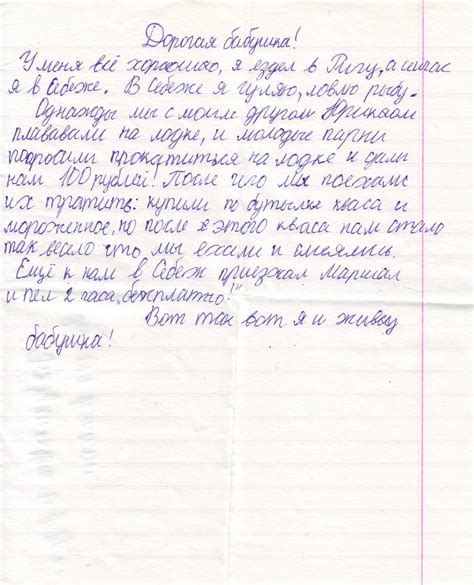 Дорогая бабушка!
У меня всё хорошо, я ездел в Ригу, а сейчас
я в Себеже. В Себеже я гуляю, ловлю рыбу.
Однажды мы с моим другом
плававали на лодке, и молодые парни
попросили прокатиться на лодке и дали
нам 100 рублей! После чего мы поехали
их тратить: купили по бутылке кваса и
мороженное, но после этого кваса нам стало
так весело что мы ехали и смеялись.
Ещё к нам в Себеж приезжал Маршал
и пел 2 часа, бесплатно!"
Вот так вот я и живу,
бабушка!